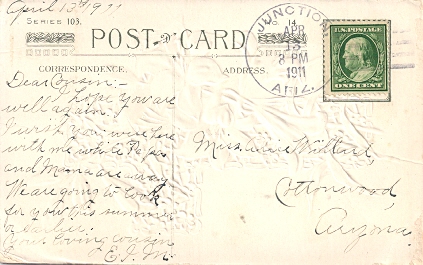 April 13th 1911
SERIES 103.
POST CARD
CORRESPONDENCE.
ADDRESS.
JUNCTION
APR
13
8 PM
1911
ARIZ.
U.S. POSTAGE
ONE CENT
Dear Cousin:-
I hope you are
well again.
I wish you were here
with me while Papa
and Mama are away.
We are going to look
for you this summer
or earlier.
Your loving cousin
E.
Miss
Cottonwood,
Arizona.